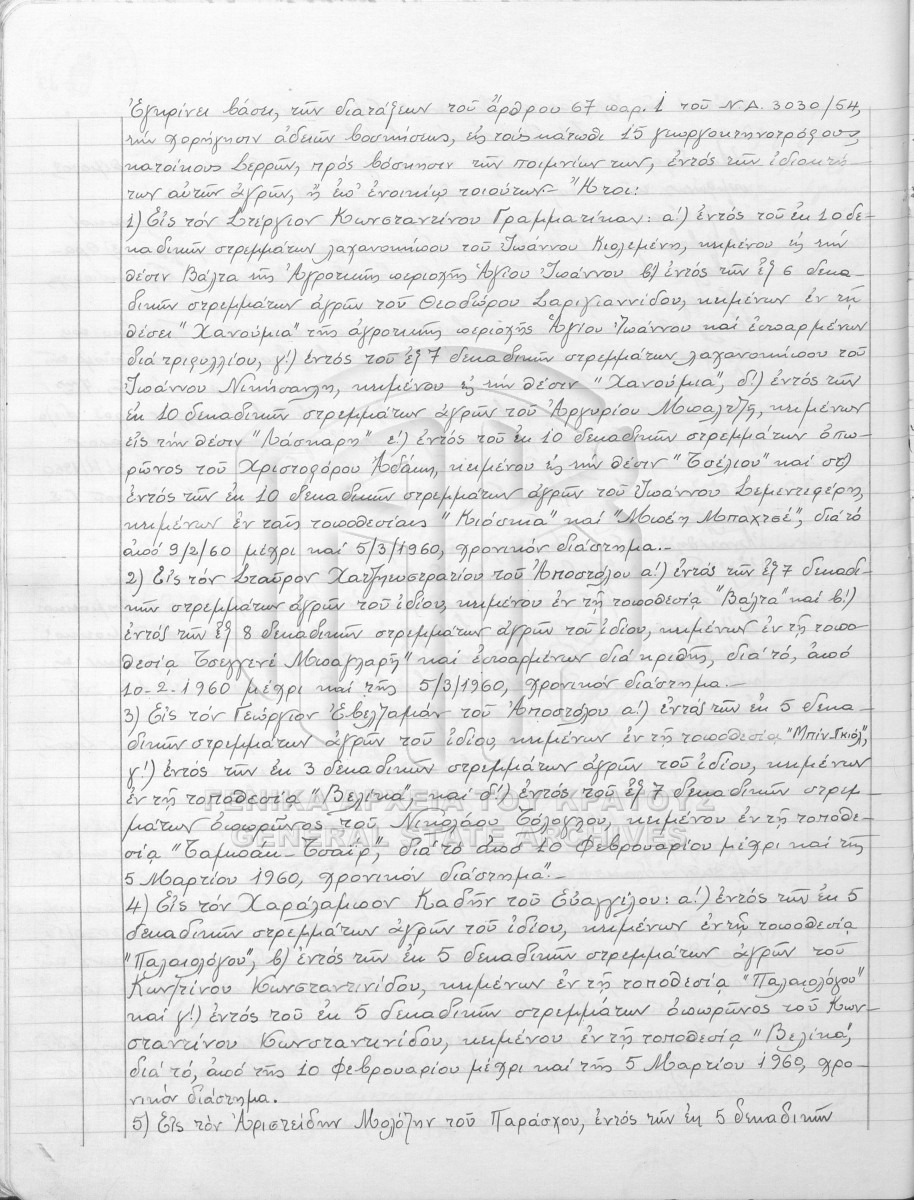 Ἐγκρίνει βάσει, τῶν διατάξεων τοῦ ἄρθρου 67 παρ. 1 τοῦ Ν.Δ. 3030/54,
τήν χορήγησιν ἀδειῶν βοσκήσεως, εἰς τούς κάτωθι 15 γεωργοκτηνοτρόφους,
κατοίκους Σερρῶν, πρός βόσκησιν τῶν ποιμνίων των, ἐντός τῶν ἰδιοκτή-
των αὐτῶν ἀγρῶν, ἤ ἐπ' ἐνοικίῳ τοιούτων.- Ἤτοι:
1) Εἰς τόν Στέργιον Κωνσταντίνου Γραμματίκαν: α!) ἐντός τοῦ ἐκ 10 δε-
καδικῶν στρεμμάτων λαχανοκήπου τοῦ Ἰωάννου Κιολεμένη, κειμένου εἰς τήν
θέσιν Βάλτα τῆς Ἀγροτικῆς περιοχῆς Ἁγίου Ἰωάννου β) ἐντός τῶν ἐξ 6 δεκα-
δικῶν στρεμμάτων ἀγρῶν τοῦ Θεοδώρου Σαρεγιαννίδου, κειμένων ἐν τῇ
θέσει "Χανούμια" τῆς ἀγροτικῆς περιοχῆς Ἁγίου Ἰωάννου καί ἐσπαρμένων
διά τριφυλλίου, γ!) ἐντός τοῦ ἐξ 7 δεκαδικῶν στρεμμάτων λαχανοκήπου τοῦ
Ἰωάννου Νικήσαλη, κειμένου εἰς τήν θέσιν "Χανούμια", δ!) ἐντός τῶν
ἐκ 10 δεκαδικῶν στρεμμάτων ἀγρῶν τοῦ Ἀργυρίου Μπαλτζῆ, κειμένων
εἰς τήν θέσιν "Λάσκαρη" ε!) ἐντός τοῦ ἐκ 10 δεκαδικῶν στρεμμάτων ὀπω-
ρῶνος τοῦ Χριστοφόρου Ἀδάμη, κειμένου εἰς τήν θέσιν "Τσέλιου" καί στ)
ἐντός τῶν ἐκ 10 δεκαδικῶν στρεμμάτων ἀγρῶν τοῦ Ἰωάννου Σεμεντεφέρη,
κειμένων ἐν ταῖς τοποθεσίαις "Κιόσκια" καί "Μπέη Μπαχτσέ", διά τό
ἀπό 9/2/60 μέχρι καί 5/3/1960, χρονικόν διάστημα.-
2) Εἰς τόν Σταῦρον Χατζηευστρατίου τοῦ Ἀποστόλου α!) ἐντός τῶν ἐξ 7 δεκαδι-
κῶν στρεμμάτων ἀγρῶν τοῦ ἰδίου, κειμένου ἐν τῇ τοποθεσίᾳ "Βάλτα" καί β!)
ἐντός τῶν ἐξ 8 δεκαδικῶν στρεμμάτων ἀγρῶν τοῦ ἰδίου, κειμένων ἐν τῇ τοπο-
θεσίᾳ Τσεγγενέ Μπαγλαρῆ" καί ἐσπαρμένων διά κριθῆς, διά τό, ἀπό
10-2-1960 μέχρι καί τῆς 5/3/1960, χρονικόν διάστημα.-
3) Εἰς τόν Γεώργιον Ἐβελζαμάν τοῦ Ἀποστόλου α!) ἐντός τῶν ἐκ 5 δεκα-
δικῶν στρεμμάτων ἀγρῶν τοῦ ἰδίου, κειμένων ἐν τῇ τοποθεσίᾳ "Μπίν-Γκιόλ",
γ!) ἐντός τῶν ἐκ 3 δεκαδικῶν στρεμμάτων ἀγρῶν τοῦ ἰδίου, κειμένων
ἐν τῇ τοποθεσίᾳ "Βελίκα", καί δ!) ἐντός τοῦ ἐξ 7 δεκαδικῶν στρεμ-
μάτων ὀπωρῶνος τοῦ Νικολάου Τόλογλου, κειμένου ἐν τῇ τοποθε-
σίᾳ "Ταμπάκ-Τσαΐρ", διά τό ἀπό 10 Φεβρουαρίου μέχρι καί τῆς
5 Μαρτίου 1960, χρονικόν διάστημα.-
4) Εἰς τόν Χαράλαμπον Καδῆν τοῦ Εὐαγγέλου: α!) ἐντός τῶν ἐκ 5
δεκαδικῶν στρεμμάτων ἀγρῶν τοῦ ἰδίου, κειμένων ἐν τῇ τοποθεσίᾳ
"Παλαιολόγου", β) ἐντός τῶν ἐκ 5 δεκαδικῶν στρεμμάτων ἀγρῶν τοῦ
Κων/τίνου Κωνσταντινίδου, κειμένων ἐν τῇ τοποθεσίᾳ "Παλαιολόγου"
καί γ!) ἐντός τοῦ ἐκ 5 δεκαδικῶν στρεμμάτων ὀπωρῶνος τοῦ Κων-
σταντίνου Κωνσταντινίδου, κειμένου ἐν τῇ τοποθεσίᾳ "Βελίκα",
διά τό, ἀπό τῆς 10 Φεβρουαρίου μέχρι καί τῆς 5 Μαρτίου 1960, χρο-
νικόν διάστημα.
5) Εἰς τόν Ἀριστείδην Μολόζην τοῦ Παράσχου, ἐντός τῶν ἐκ 5 δεκαδικῶν
ΓΕΝΙΚΑ ΑΡΧΕΙΑ ΤΟΥ ΚΡΑΤΟΥΣ
GENERAL STATE ARCHIVES